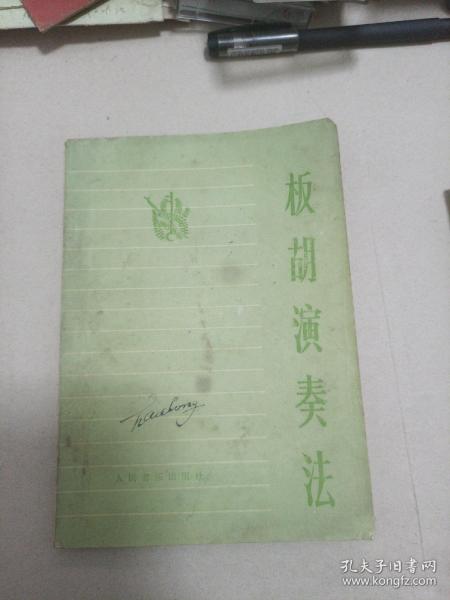 板胡演奏法
人民音乐出版社
孔夫子旧书网
www.kongfz.com